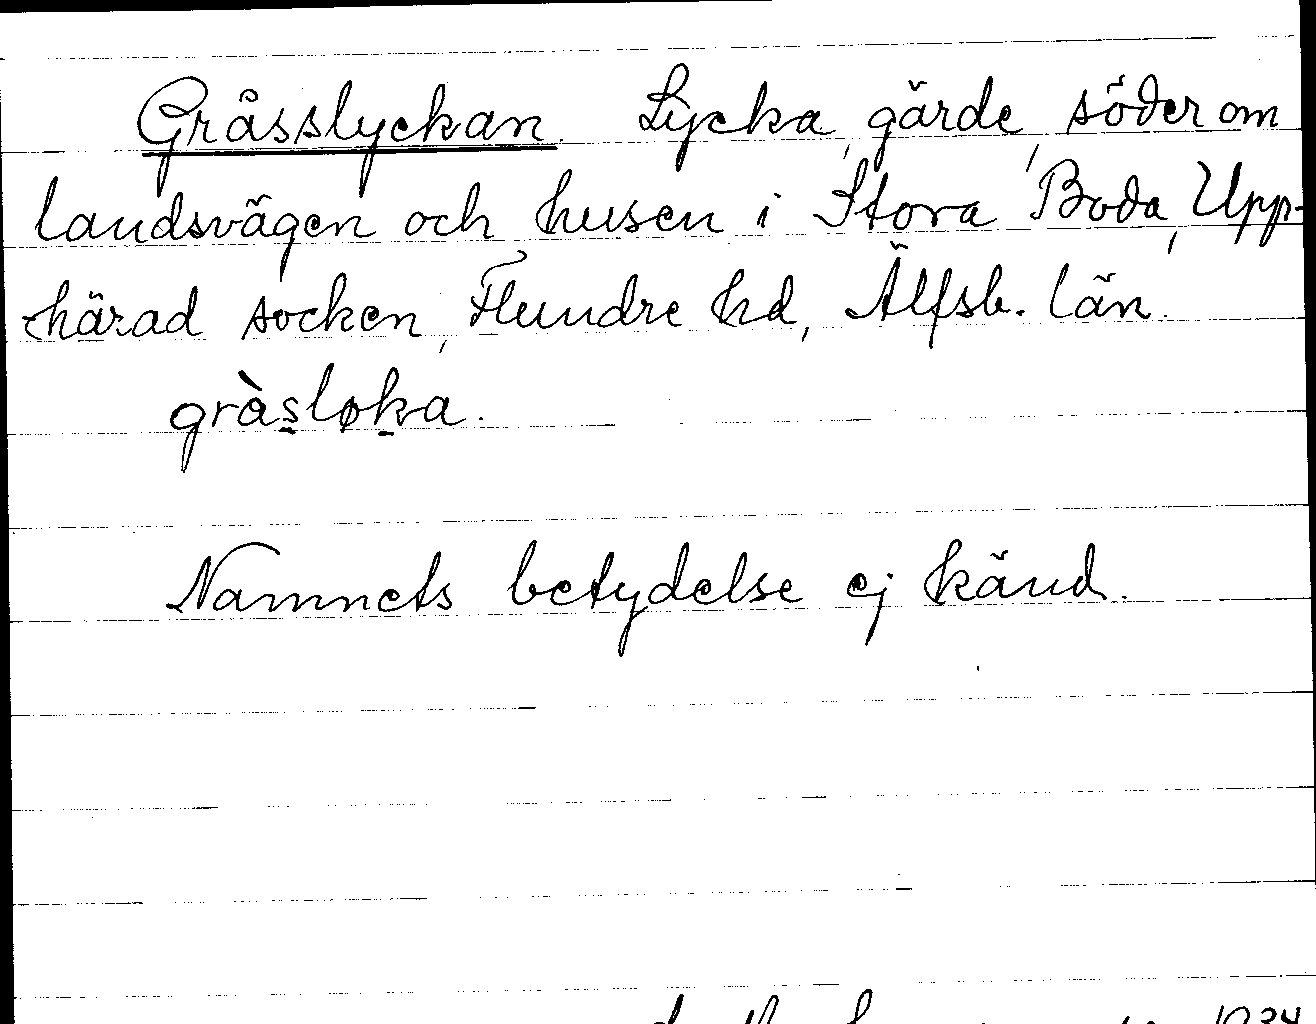 Gråsslyckan. Lycka, gärde, söder om
landsvägen och husen i Stora Boda, Upp-
härad socken, Flundre hd, Älfsb. län.
gràs̱løḵa.
Namnets betydelse ej känd.
1934